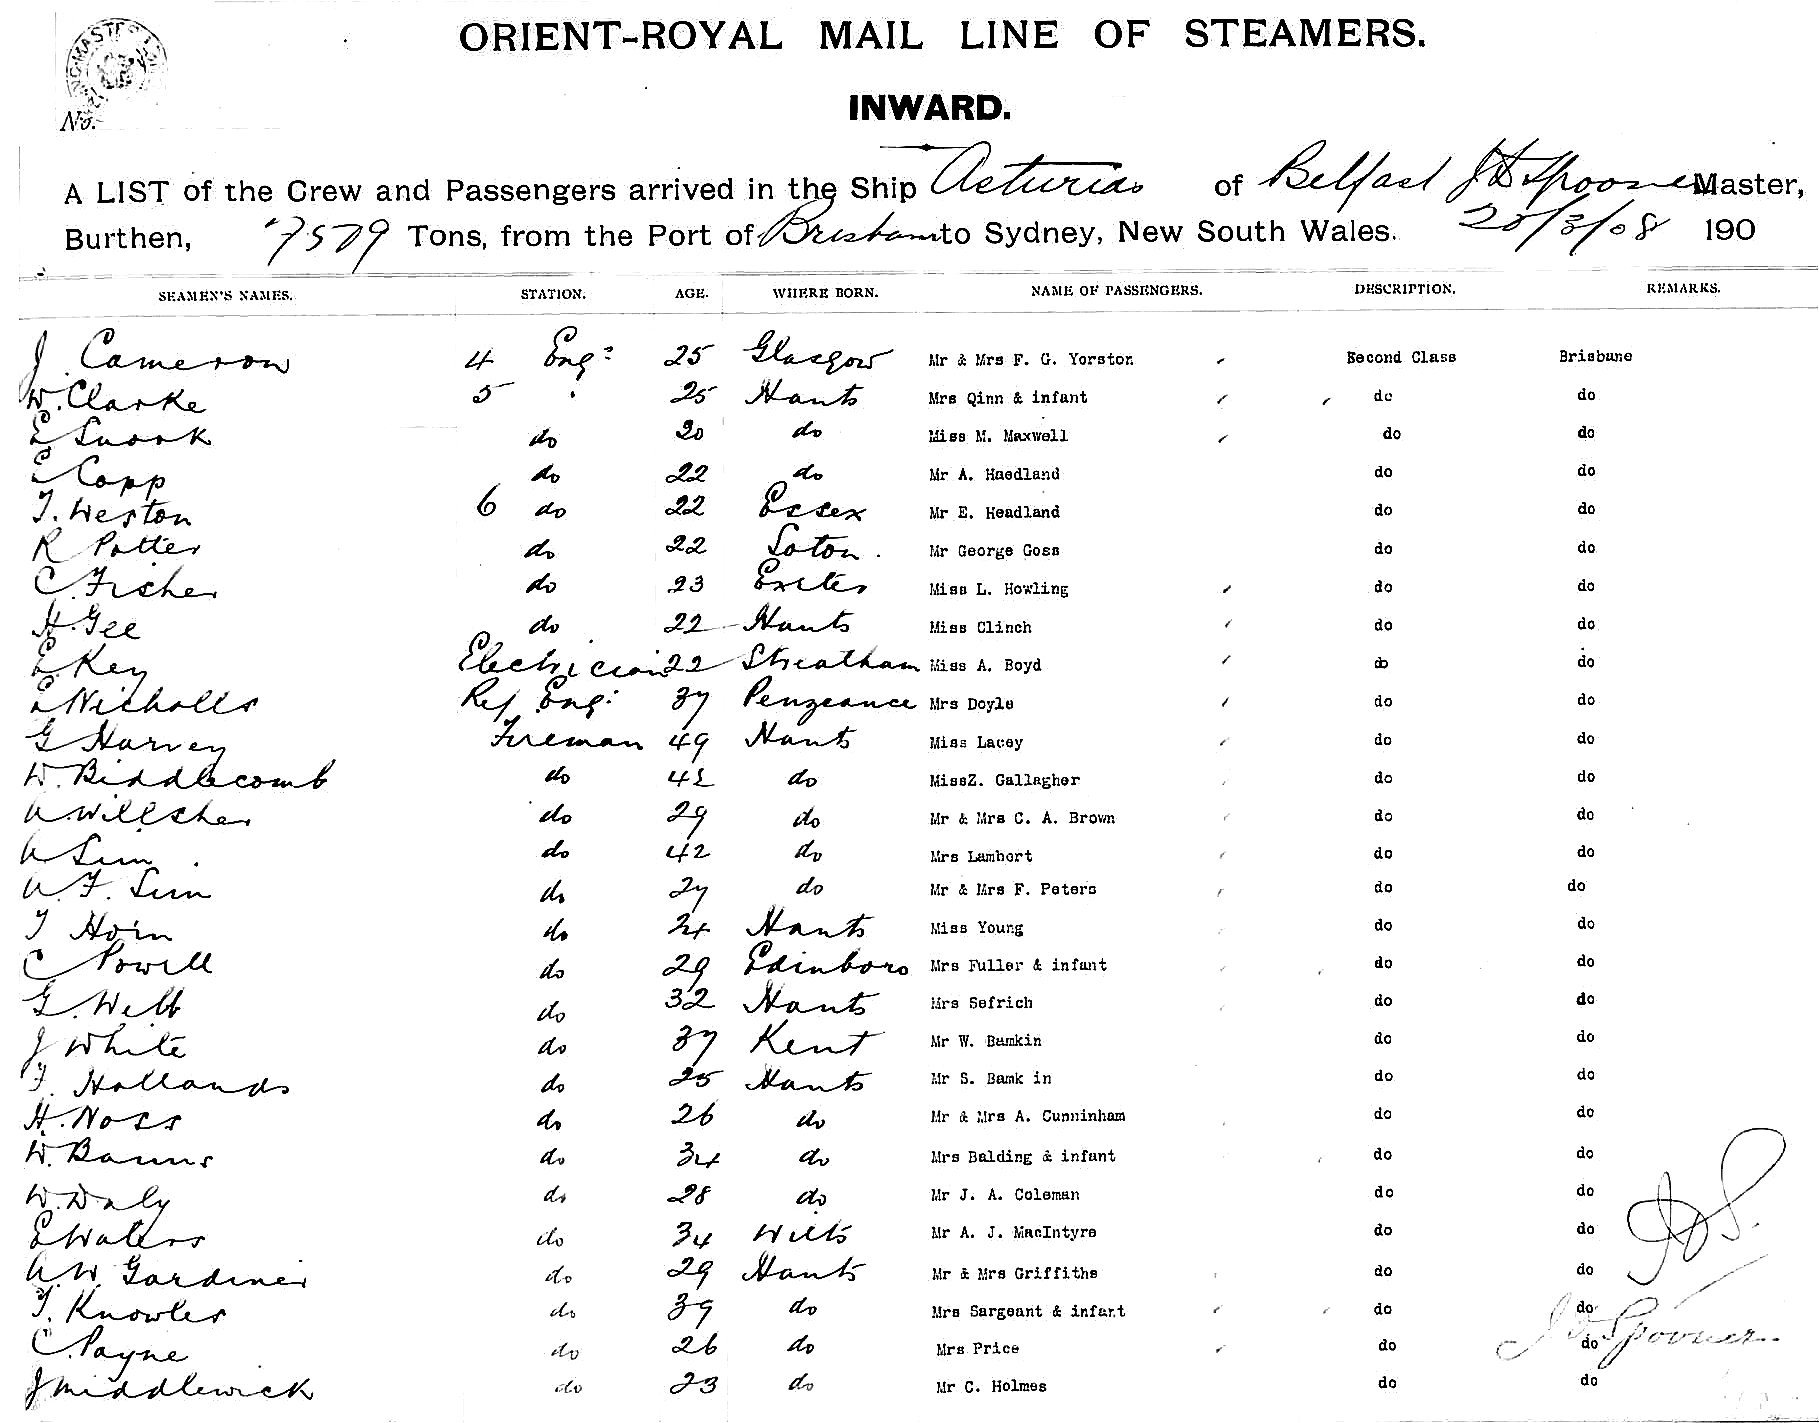 No.
ORIENT-ROYAL MAIL LINE OF STEAMERS.
INWARD.
A LIST of the Crew and Passengers arrived in the Ship Asturias of Belfast J D Spooner Master,
Burthen, 7579 Tons, from the Port of Brisbane to Sydney, New South Wales. 20/3/08 190
SEAMEN'S NAMES. STATION. AGE. WHERE BORN. NAME OF PASSENGERS. DESCRIPTION. REMARKS.
J Cameron 4 Engr 25 Glasgow Mr & Mrs F. G. Yorston Second Class Brisbane
W. Clarke 5 " 25 Hants Mrs Qinn & infant do do
E Snook do 20 do Miss M. Maxwell do do
C Copp do 22 do Mr A. Haedland do do
T. Weston 6 do 22 Essex Mr E. Headland do do
R Potter do 22 Soton. Mr George Goss do do
C. Fisher do 23 Exeter Miss L. Howling do do
H. Gee do 22 Hants Miss Clinch do do
E. Key Electrician 22 Streatham Miss A. Boyd do do
E Nicholls Ref Engr 37 Pengeance Mrs Doyle do do
G Harvey Fireman 49 Hants Miss Lacey do do
W. Biddlecomb do 42 do MissZ. Gallagher do do
A. Willsher do 29 do Mr & Mrs C. A. Brown do do
A Sim do 42 do Mrs Lambert do do
A. F. Sim do 27 do Mr & Mrs F. Peters do do
T Horn do 24 Hants Miss Young do do
C Powell do 29 Edinboro Mrs Fuller & infant do do
G. Webb do 32 Hants Mrs Sefrich do do
J White do 37 Kent Mr W. Bamkin do do
F. Hollands do 25 Hants Mr S. Bamk in do do
H. Noss do 26 do Mr & Mrs A. Cunninham do do
W. Banns do 34 do Mrs Balding & infant do do
W. Daly do 28 do Mr J. A. Coleman do do
E Waters do 34 Wilts Mr A. J. MacIntyre do do
A. W. Gardiner do 29 Hants Mr & Mrs Griffiths do do
T. Knowles do 39 do Mrs Sargeant & infant do do
C. Payne do 26 do Mrs Price do do
J Middlewick do 23 do Mr C. Holmes do do
J D Spooner